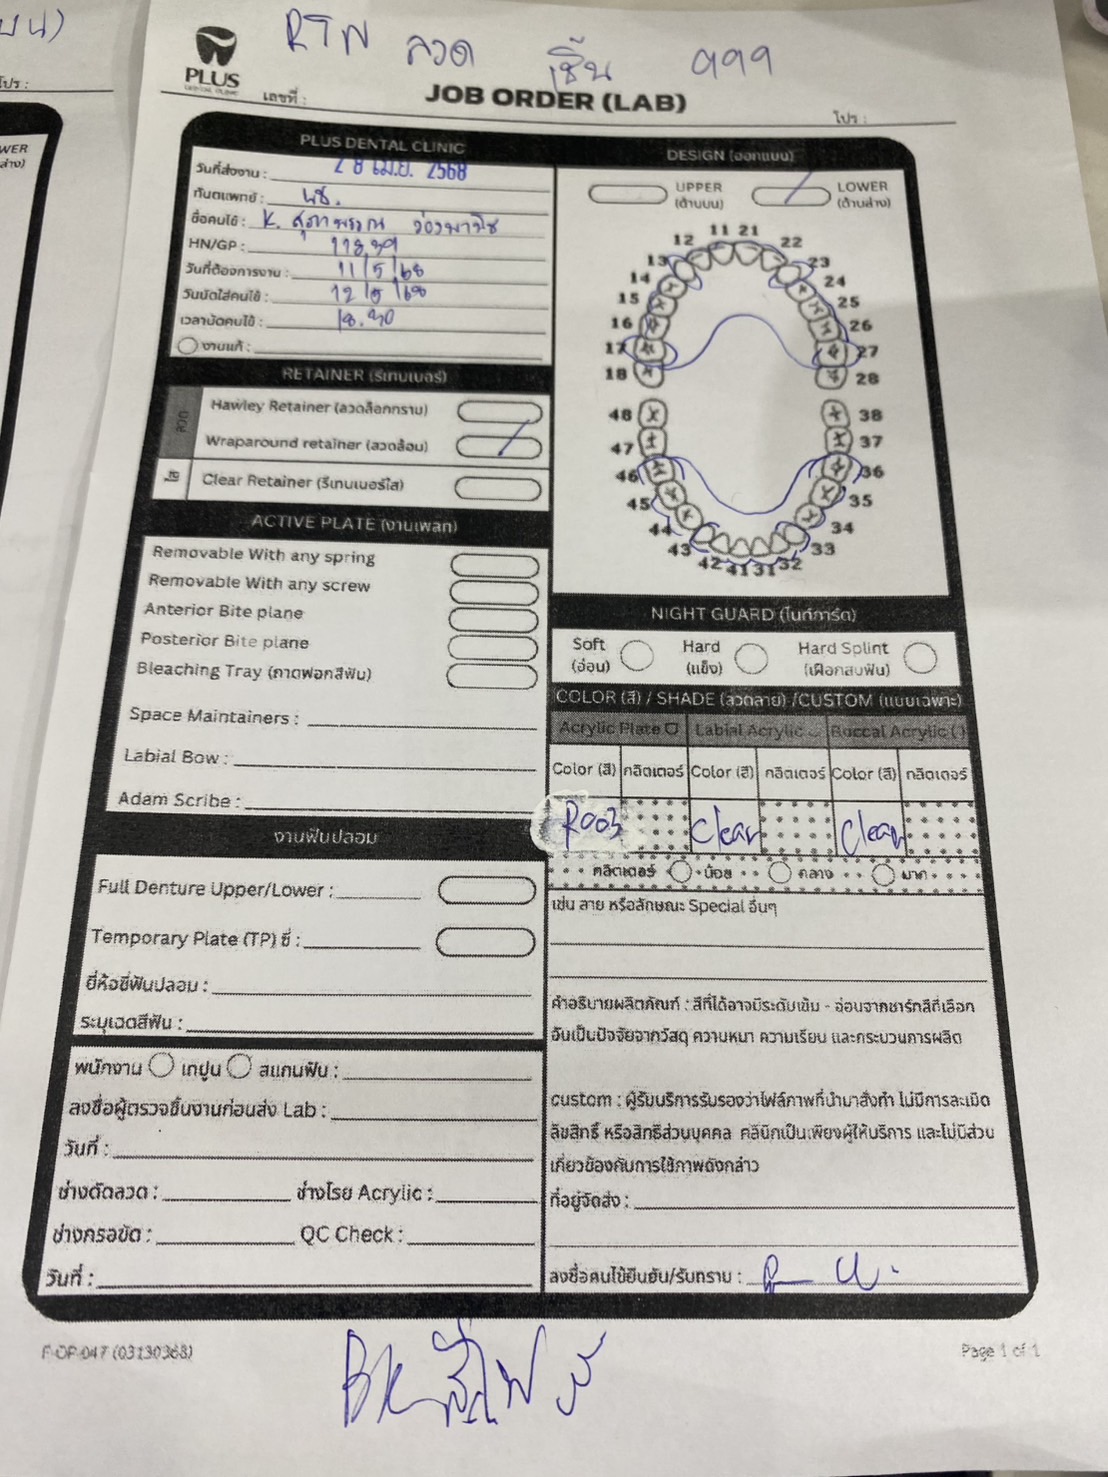 บน)
โปร :
WER
ล่าง)
RTN ลวด ชิ้น 999
PLUS
DENTAL CLINIC
เลขที่ :
JOB ORDER (LAB)
โปร :
PLUS DENTAL CLINIC
วันที่ส่งงาน : 28 เม.ย. 2568
ทันตแพทย์ :
ชื่อคนไข้ : K. สุภาพรรณ
HN/GP :
วันที่ต้องการงาน : 11/5/68
วันนัดใส่คนไข้ : 12/5/68
เวลานัดคนไข้ : 18.30
งานแก้ :
RETAINER (รีเทนเนอร์)
ลวด
Hawley Retainer (ลวดล็อกกราม)
Wraparound retainer (ลวดล้อม)
ใส
Clear Retainer (รีเทนเนอร์ใส)
ACTIVE PLATE (งานเพลท)
Removable With any spring
Removable With any screw
Anterior Bite plane
Posterior Bite plane
Bleaching Tray (ถาดฟอกสีฟัน)
Space Maintainers :
Labial Bow :
Adam Scribe :
งานฟันปลอม
Full Denture Upper/Lower :
Temporary Plate (TP) ซี่ :
ยี่ห้อซี่ฟันปลอม :
ระบุเฉดสีฟัน :
พนักงาน เทปูน สแกนฟัน :
ลงชื่อผู้ตรวจชิ้นงานก่อนส่ง Lab :
วันที่ :
ช่างดัดลวด : ช่างโรย Acrylic :
ช่างกรอขัด : QC Check :
วันที่ :
DESIGN (ออกแบบ)
UPPER (ด้านบน) LOWER (ด้านล่าง)
11 21
12 22
13 23
14 24
15 25
16 26
17 27
18 28
48 38
47 37
46 36
45 35
44 34
43 33
42 41 31 32
NIGHT GUARD (ไนท์การ์ด)
Soft (อ่อน) Hard (แข็ง) Hard Splint (เฝือกสบฟัน)
COLOR (สี) / SHADE (ลวดลาย) /CUSTOM (แบบเฉพาะ)
Acrylic Plate Labial Acrylic Buccal Acrylic ( )
Color (สี) กลิตเตอร์ Color (สี) กลิตเตอร์ Color (สี) กลิตเตอร์
R003 Clear Clear
กลิตเตอร์ น้อย กลาง มาก
เช่น ลาย หรือลักษณะ Special อื่นๆ
คำอธิบายผลิตภัณฑ์ : สีที่ได้อาจมีระดับเข้ม - อ่อนจากชาร์ทสีที่เลือก
อันเป็นปัจจัยจากวัสดุ ความหนา ความเรียบ และกระบวนการผลิต
custom : ผู้รับบริการรับรองว่าไฟล์ภาพที่นำมาสั่งทำ ไม่มีการละเมิด
ลิขสิทธิ์ หรือสิทธิส่วนบุคคล คลินิกเป็นเพียงผู้ให้บริการ และไม่มีส่วน
เกี่ยวข้องกับการใช้ภาพดังกล่าว
ที่อยู่จัดส่ง :
ลงชื่อคนไข้ยืนยัน/รับทราบ :
F-OP-047 (03130368)
Page 1 of 1